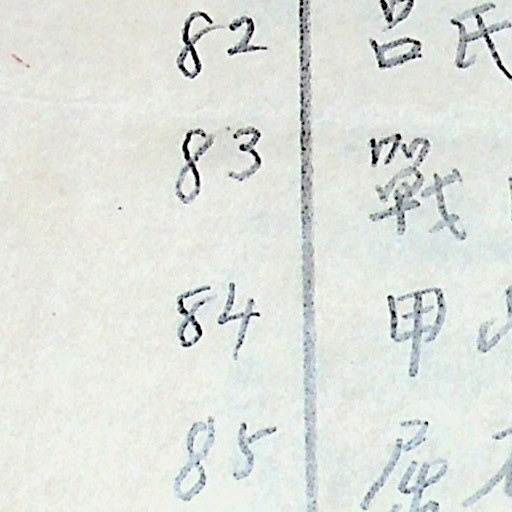 82 呂氏
83 戰
84 甲
85